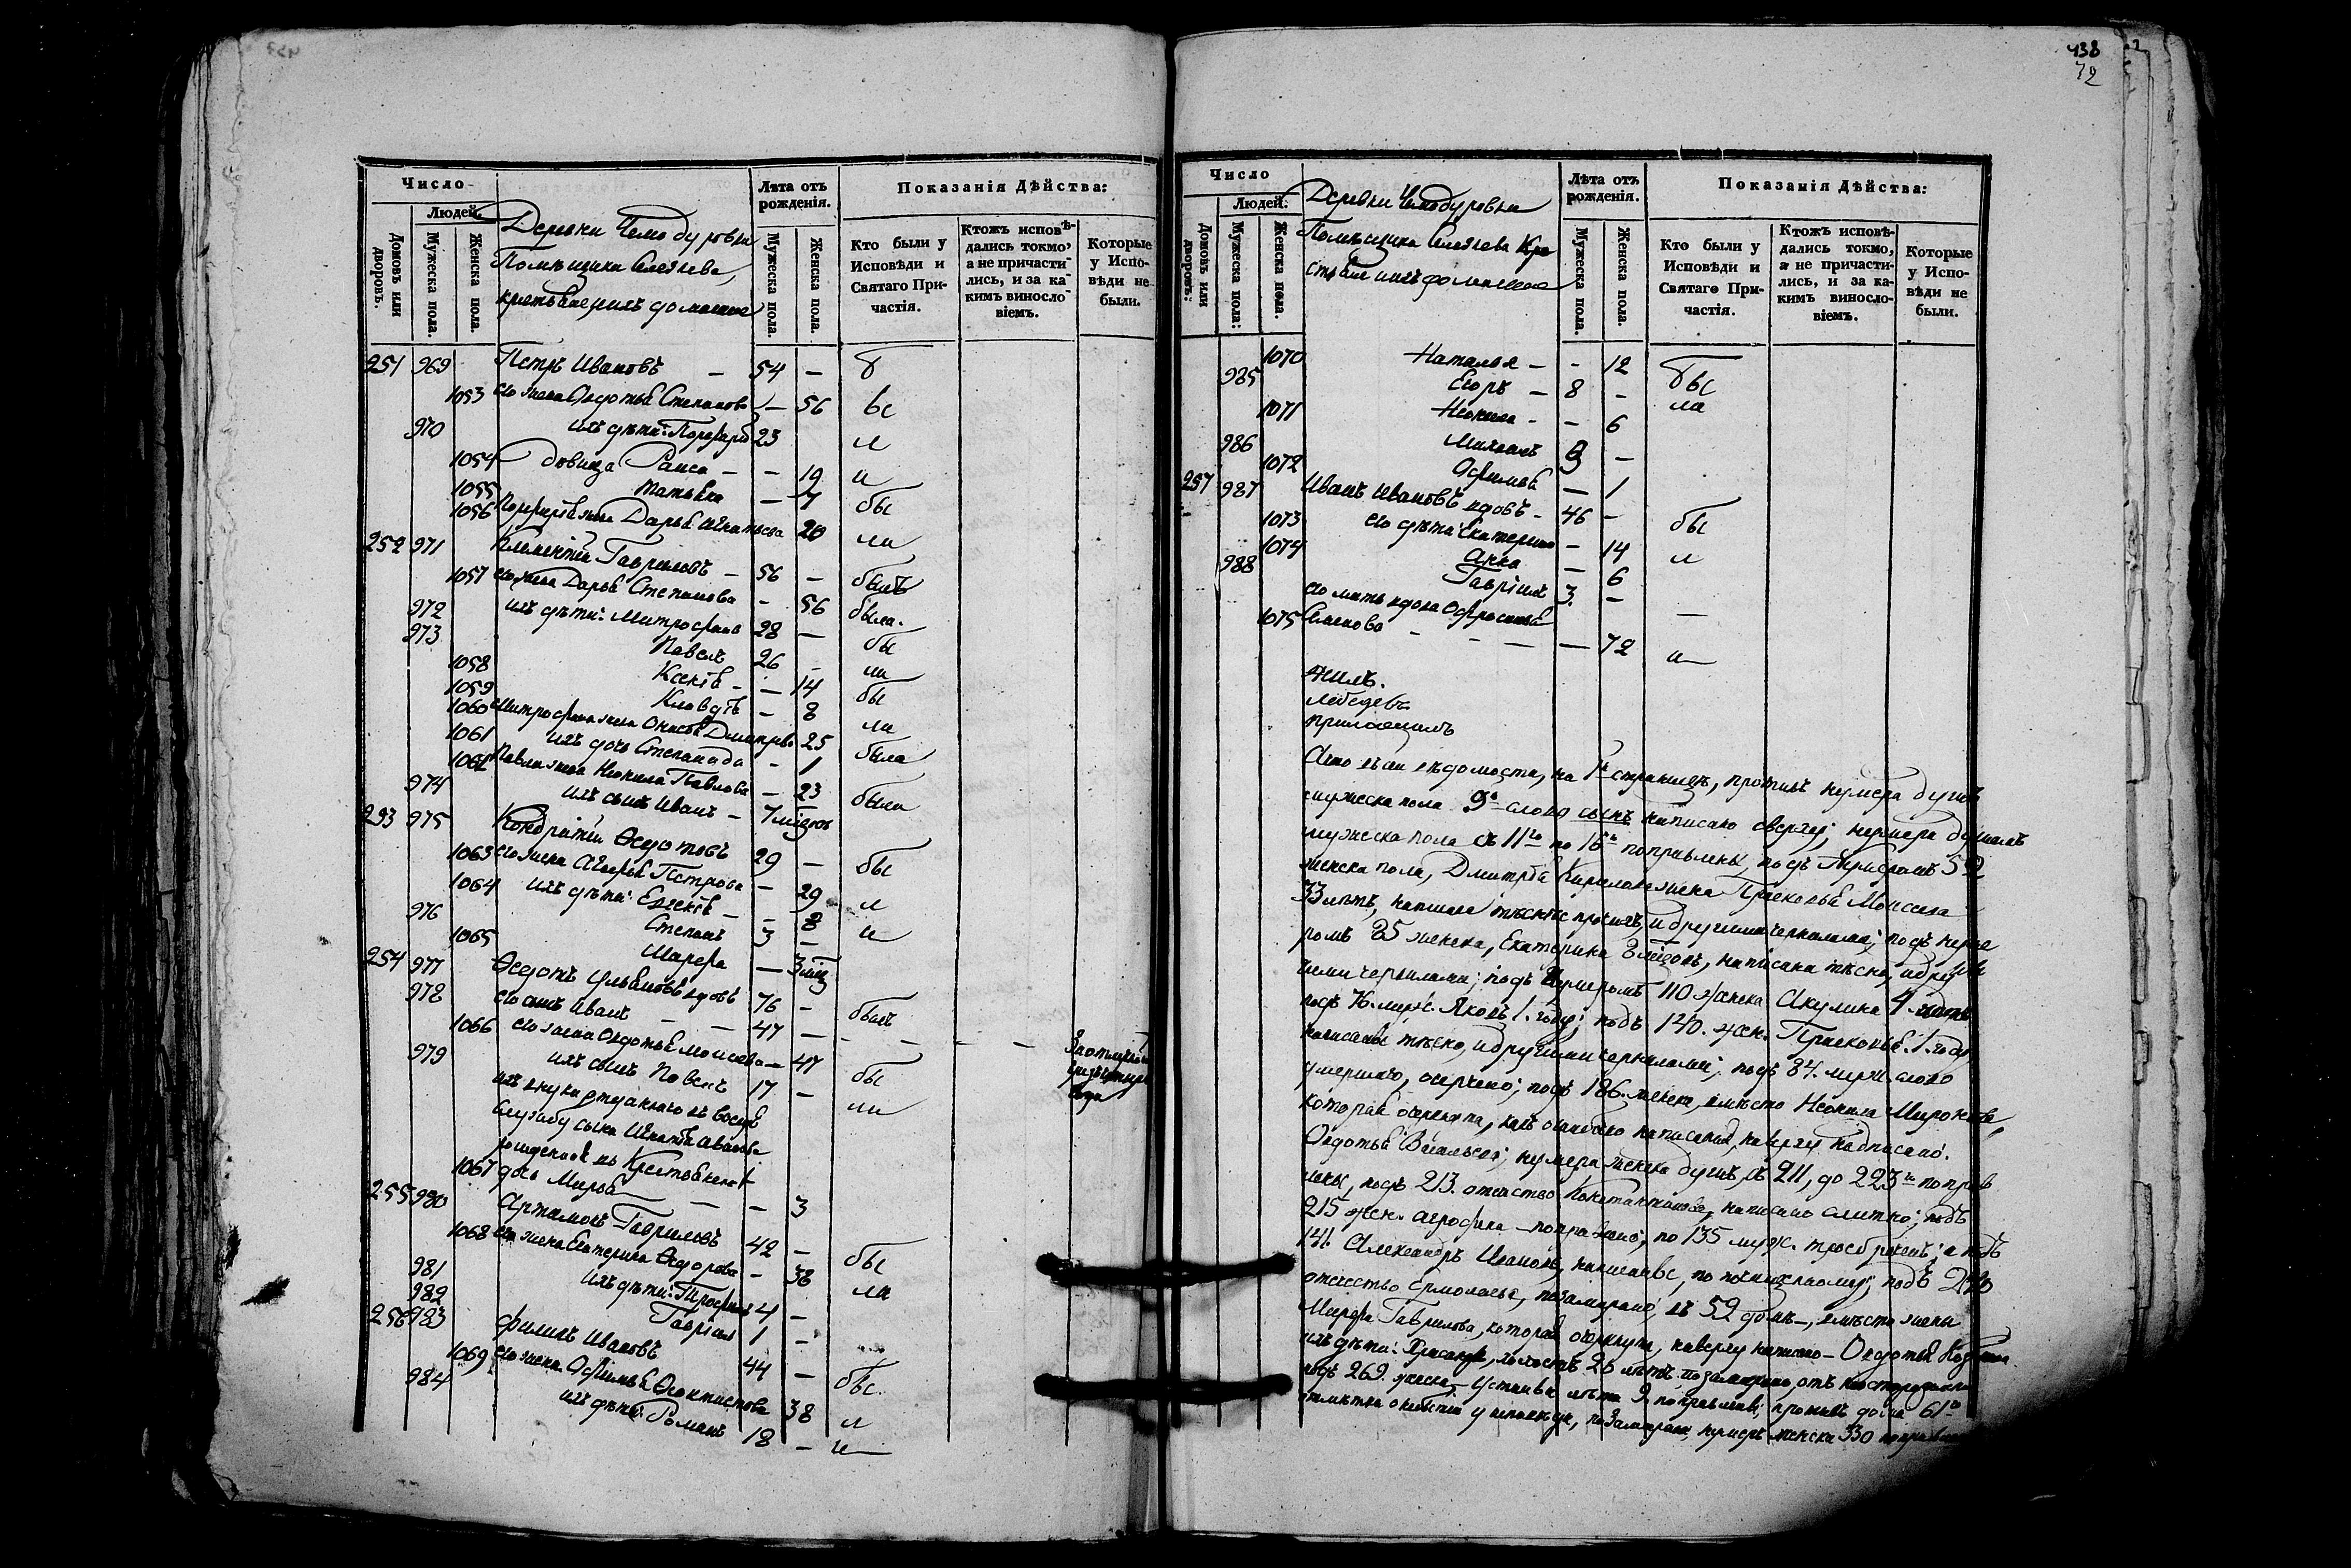 Число
Людей.
Домовъ или дворовъ.
Мужеска пола.
Женска пола.
Деревни Чемодуровки
Помѣщика Селезнева,
крестьяне и ихъ домашніе
Лѣта отъ рожденія.
Мужеска пола.
Женска пола.
Показанія Дѣйства:
Кто были у Исповѣди и Святаго Причастія.
Ктожъ исповѣдались токмо, а не причастились, и за какимъ винословіемъ.
Которые у Исповѣди не были.
251 969 Петръ Ивановъ — 54 — б
1053 его жена Авдотья Степанова — 56 ы
970 ихъ дѣти: Порфирій 23 л
1054 дѣвица Раиса — — 19 и
1055 Татьяна — 7 бы
1056 Порфирія жена Дарья Игнатьева 20 ли
252 971 Климентій Гавриловъ — 56 — былъ
1057 его жена Дарья Степанова — 56 была.
972 ихъ дѣти: Митрофанъ 28 — бы
973 Павелъ 26 — ли
1058 Ксенія — — 14 бы
1059 Клавдія — 8 ли
1060 Митрофана жена Анисья Дмитріева 25 была
1061 ихъ дочь Степанида — 1
1062 Павла жена Неонила Павлова — 23 была
974 ихъ сынъ Иванъ — 7 мѣсяцевъ
293 975 Кондратій Ѳедотовъ 29 — бы
1063 его жена Агафья Петрова — 29 л
1064 ихъ дѣти: Евгенія — — 8 и
976 Степанъ 3 —
1065 Марфа — 3 мѣ
254 977 Ѳедотъ Ульяновъ вдовъ 76 — былъ
978 его сынъ Иванъ — — 47 — — — —
1066 его жена Авдотья Моисеева — 47 бы
979 ихъ сынъ Павелъ 17 — ли
ихъ внука отданнаго въ военную
службу сына Игнатія Иванова
рожденная въ крестьянст
1067 дочь Марья — — 3
255 980 Артамонъ Гавриловъ 42 — бы
1068 его жена Екатерина Ѳедорова — 38 ли
981 ихъ дѣти: Трофимъ 4 —
982 Гавріилъ 1 —
256 983 Филипъ Ивановъ 44 — бы
1069 его жена Афимья Ѳеоктистова 38 л
984 ихъ дѣти: Романъ 18 — и
138
72
Число
Людей.
Домовъ или дворовъ:
Мужеска пола:
Женска пола.
Деревни Чемодуровки
Помѣщика Селезнева Кре
стьяне и ихъ домашніе
Лѣта отъ рожденія.
Мужеска пола.
Женска пола.
Показанія Дѣйства:
Кто были у Исповѣди и Святаго Причастія.
Ктожъ исповѣдались токмо, а не причастились, и за какимъ винословіемъ.
Которые у Исповѣди не были.
1070 Наталья — — 12 бы
985 Егоръ — 8 — ли
1071 Неонила — — 6
986 Михаилъ 3 —
1072 Афимья — 1
257 987 Иванъ Ивановъ вдовъ — 46 — бы
1073 его дѣти: Екатерина — 14 л
1074 Анна — 6
988 Гавріилъ 3. — —
его мать вдова Афросинья
1075 Семенова — — — — 72 и
Лебедевъ
Что въ сей вѣдомости, на 1й страницѣ, противъ нумера душъ
мужеска пола 9го слово сынъ написано сверху; нумера душамъ
мужеска пола съ 11го по 16й поправлены; подъ нумеромъ 52
женска пола, Дмитрія Кирилова жена Прасковья Моисеева
33 лѣтъ, написана тѣснѣе прочихъ, и другими чернилами; подъ нуме
ромъ 85 женска, Екатерина 3 мѣсяцовъ, написана тѣсно, и дру
гими чернилами; подъ нумеромъ 110 женска Акулина 4
подъ 76. муж. Яковъ 1. году; подъ 140. жен. Прасковья. 1. году
написаны тѣсно, и другими чернилами; подъ 84. муж. слово
умершаго, очерчено; подъ 186. женска, вмѣсто Неонила Миронова,
которая очеркнута, какъ ошибкою написанная, наверху надписано.
Авдотья Васильева; нумера женска душъ, съ 211, до 223го поправ
лены, подъ 213. отчество Константинова, написано слитно; подъ
215 жен. Агрофена — поправлено; по 135 муж. ; а подъ
141. Александръ Ивановъ, написанъ, по ; подъ 240
отчество Ермолаева, позамарано; въ 59 домѣ —, вмѣсто жены
Марфа Гаврилова, которая очеркнута, наверху написано — Авдотья
ихъ дѣти: , холостъ 26 лѣтъ позамарано, отъ неосторожности
подъ 269. женска — Устинья лѣта 9. поправлены; противъ дома 61го
отмѣтка о небытіи у исповѣди, позамарана, нумеръ женска 330